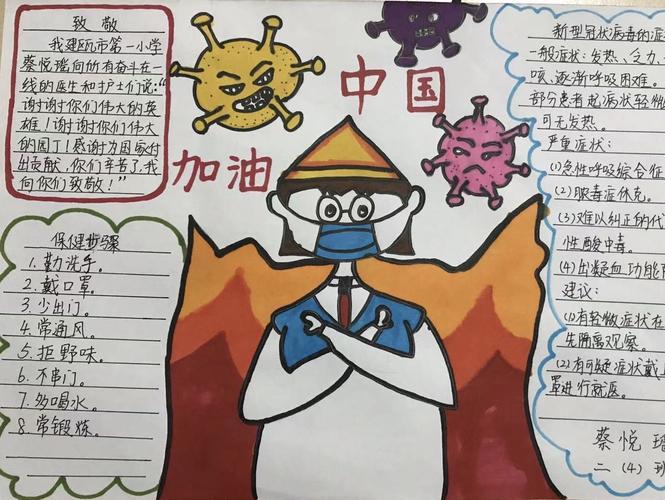 致敬
我建瓯市第一小学
蔡悦瑶向所有奋斗在一
线的医生和护士们说：“
谢谢你们伟大的英
雄！谢谢谢你们伟大
的园丁！感谢为国家付
出贡献，你们辛苦了，我
向你们致敬！”
中国
加油
保健步骤
1.勤洗手。
2.戴口罩。
3.少出门。
4.常通风。
5.拒野味。
6.不串门。
7.多喝水。
8.常锻炼。
新型冠状病毒的症
一般症状：发热、乏力、
咳、逐渐呼吸困难。
部分患者起病状轻微
可无发热。
严重症状：
(1)急性呼吸综合症
(2)脓毒症休克。
(3)难以纠正的代
性酸中毒。
(4)出凝血功能
建议：
(1)有轻微症状在
先隔离观察。
(2)有可疑症状戴
罩进行就医。
蔡悦
二（4）班